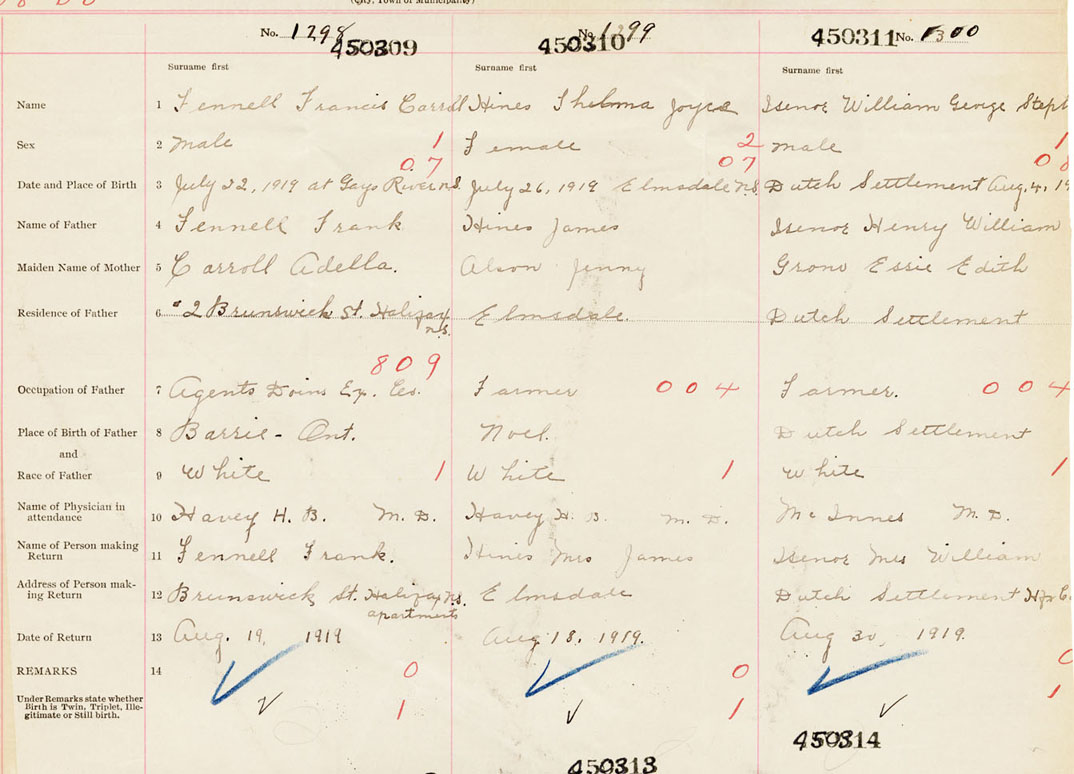 (City, Town or Municipality)
No. 1298 450309 No. 1299 450310 450311 No. 1300
Surname first Surname first Surname first
Name 1 Fennell Francis Carroll Hines Thelma Joyce Isenor William George Steph
Sex 2 Male 1 Female 2 Male 1
07 07 08
Date and Place of Birth 3 July 22, 1919 at Gays River N.S. July 26, 1919 Elmsdale N.S. Dutch Settlement Aug. 4, 19
Name of Father 4 Fennell Frank Hines James Isenor Henry William
Maiden Name of Mother 5 Carroll Adella. Alson Jenny Grono Essie Edith
Residence of Father 6 2 Brunswick St. Halifax Elmsdale. Dutch Settlement
N.S.
809
Occupation of Father 7 Agents Ex. Co. Farmer 004 Farmer. 004
Place of Birth of Father 8 Barrie - Ont. Noel. Dutch Settlement
and
Race of Father 9 White 1 White 1 White 1
Name of Physician in
attendance 10 Havey H. B. M. D. Havey H. B. M. D. McInnes M. D.
Name of Person making
Return 11 Fennell Frank. Hines Mrs James Isenor Mrs William
Address of Person mak-
ing Return 12 Brunswick St. Halifax N.S. Elmsdale Dutch Settlement Hfx Co.
apartments
Date of Return 13 Aug. 19, 1919 Aug 18, 1919. Aug 30, 1919.
REMARKS 14 0 0 0
Under Remarks state whether
Birth is Twin, Triplet, Ille-
gitimate or Still birth. 1 1 1
450314
450313